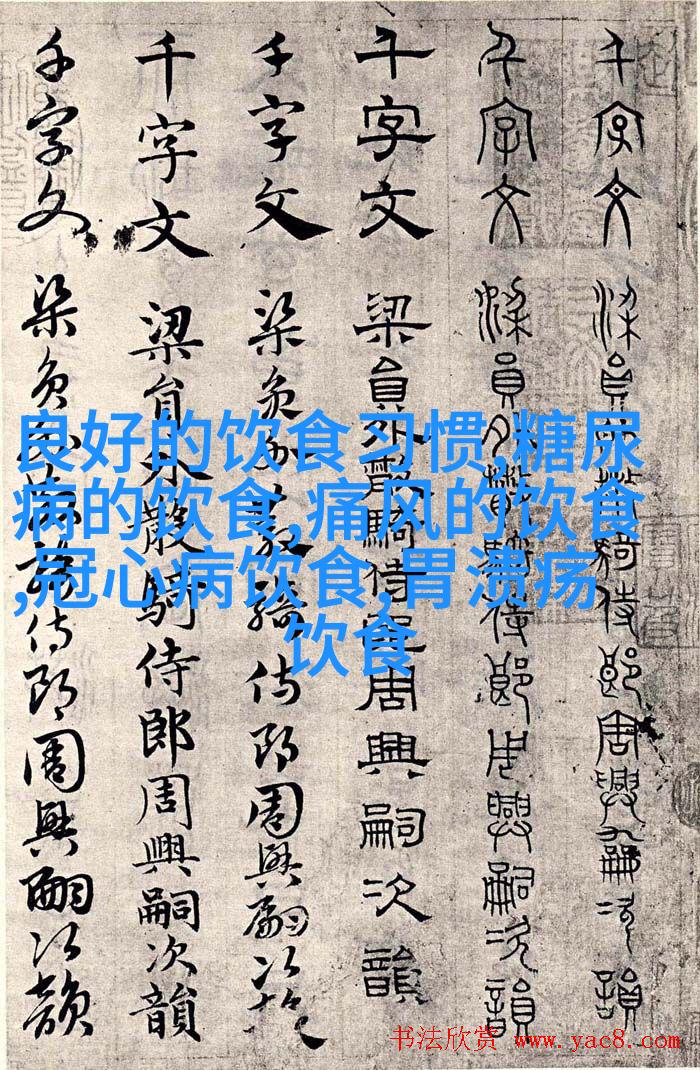 千字文 梁員外散騎侍郎周興嗣次韻
千字文 梁員外散騎侍郎周興嗣次韻
千字文 梁員外散騎侍郎周興嗣次韻
千字文 梁員外散騎侍郎周興嗣次韻
千字文 梁員外散騎侍郎周興嗣次韻
千字文 梁員外散騎侍郎周興嗣次韻
良好的饮食习惯,糖尿
病的饮食,痛风的饮食
,冠心病饮食,胃溃疡
饮食
书法欣赏 www.yac8.com